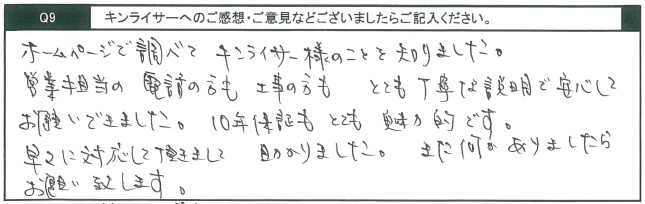 Q9 キンライサーへのご感想・ご意見などございましたらご記入ください。
ホームページで調べて キンライサー様のことを知りました。
営業担当の 電話の方も 工事の方も とても丁寧な説明で安心して
お願いできました。 10年保証もとても魅力的です。
早々に対応して頂きまして 助かりました。 また何かありましたら
お願い致します。